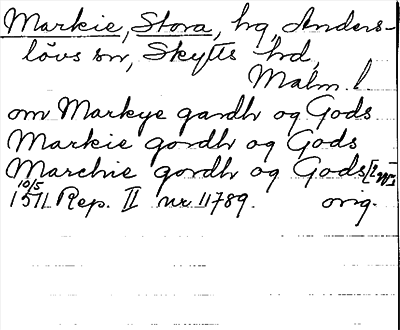 Markie, Stora, hg, Anders-
lövs sn, Skytts hd,
Malm. l
om Markye gardh og Gods
Markie gordh og Gods
Marchie gordh og Gods [2 ggr]
10/5
1571 Rep. II nr 11789. orig.